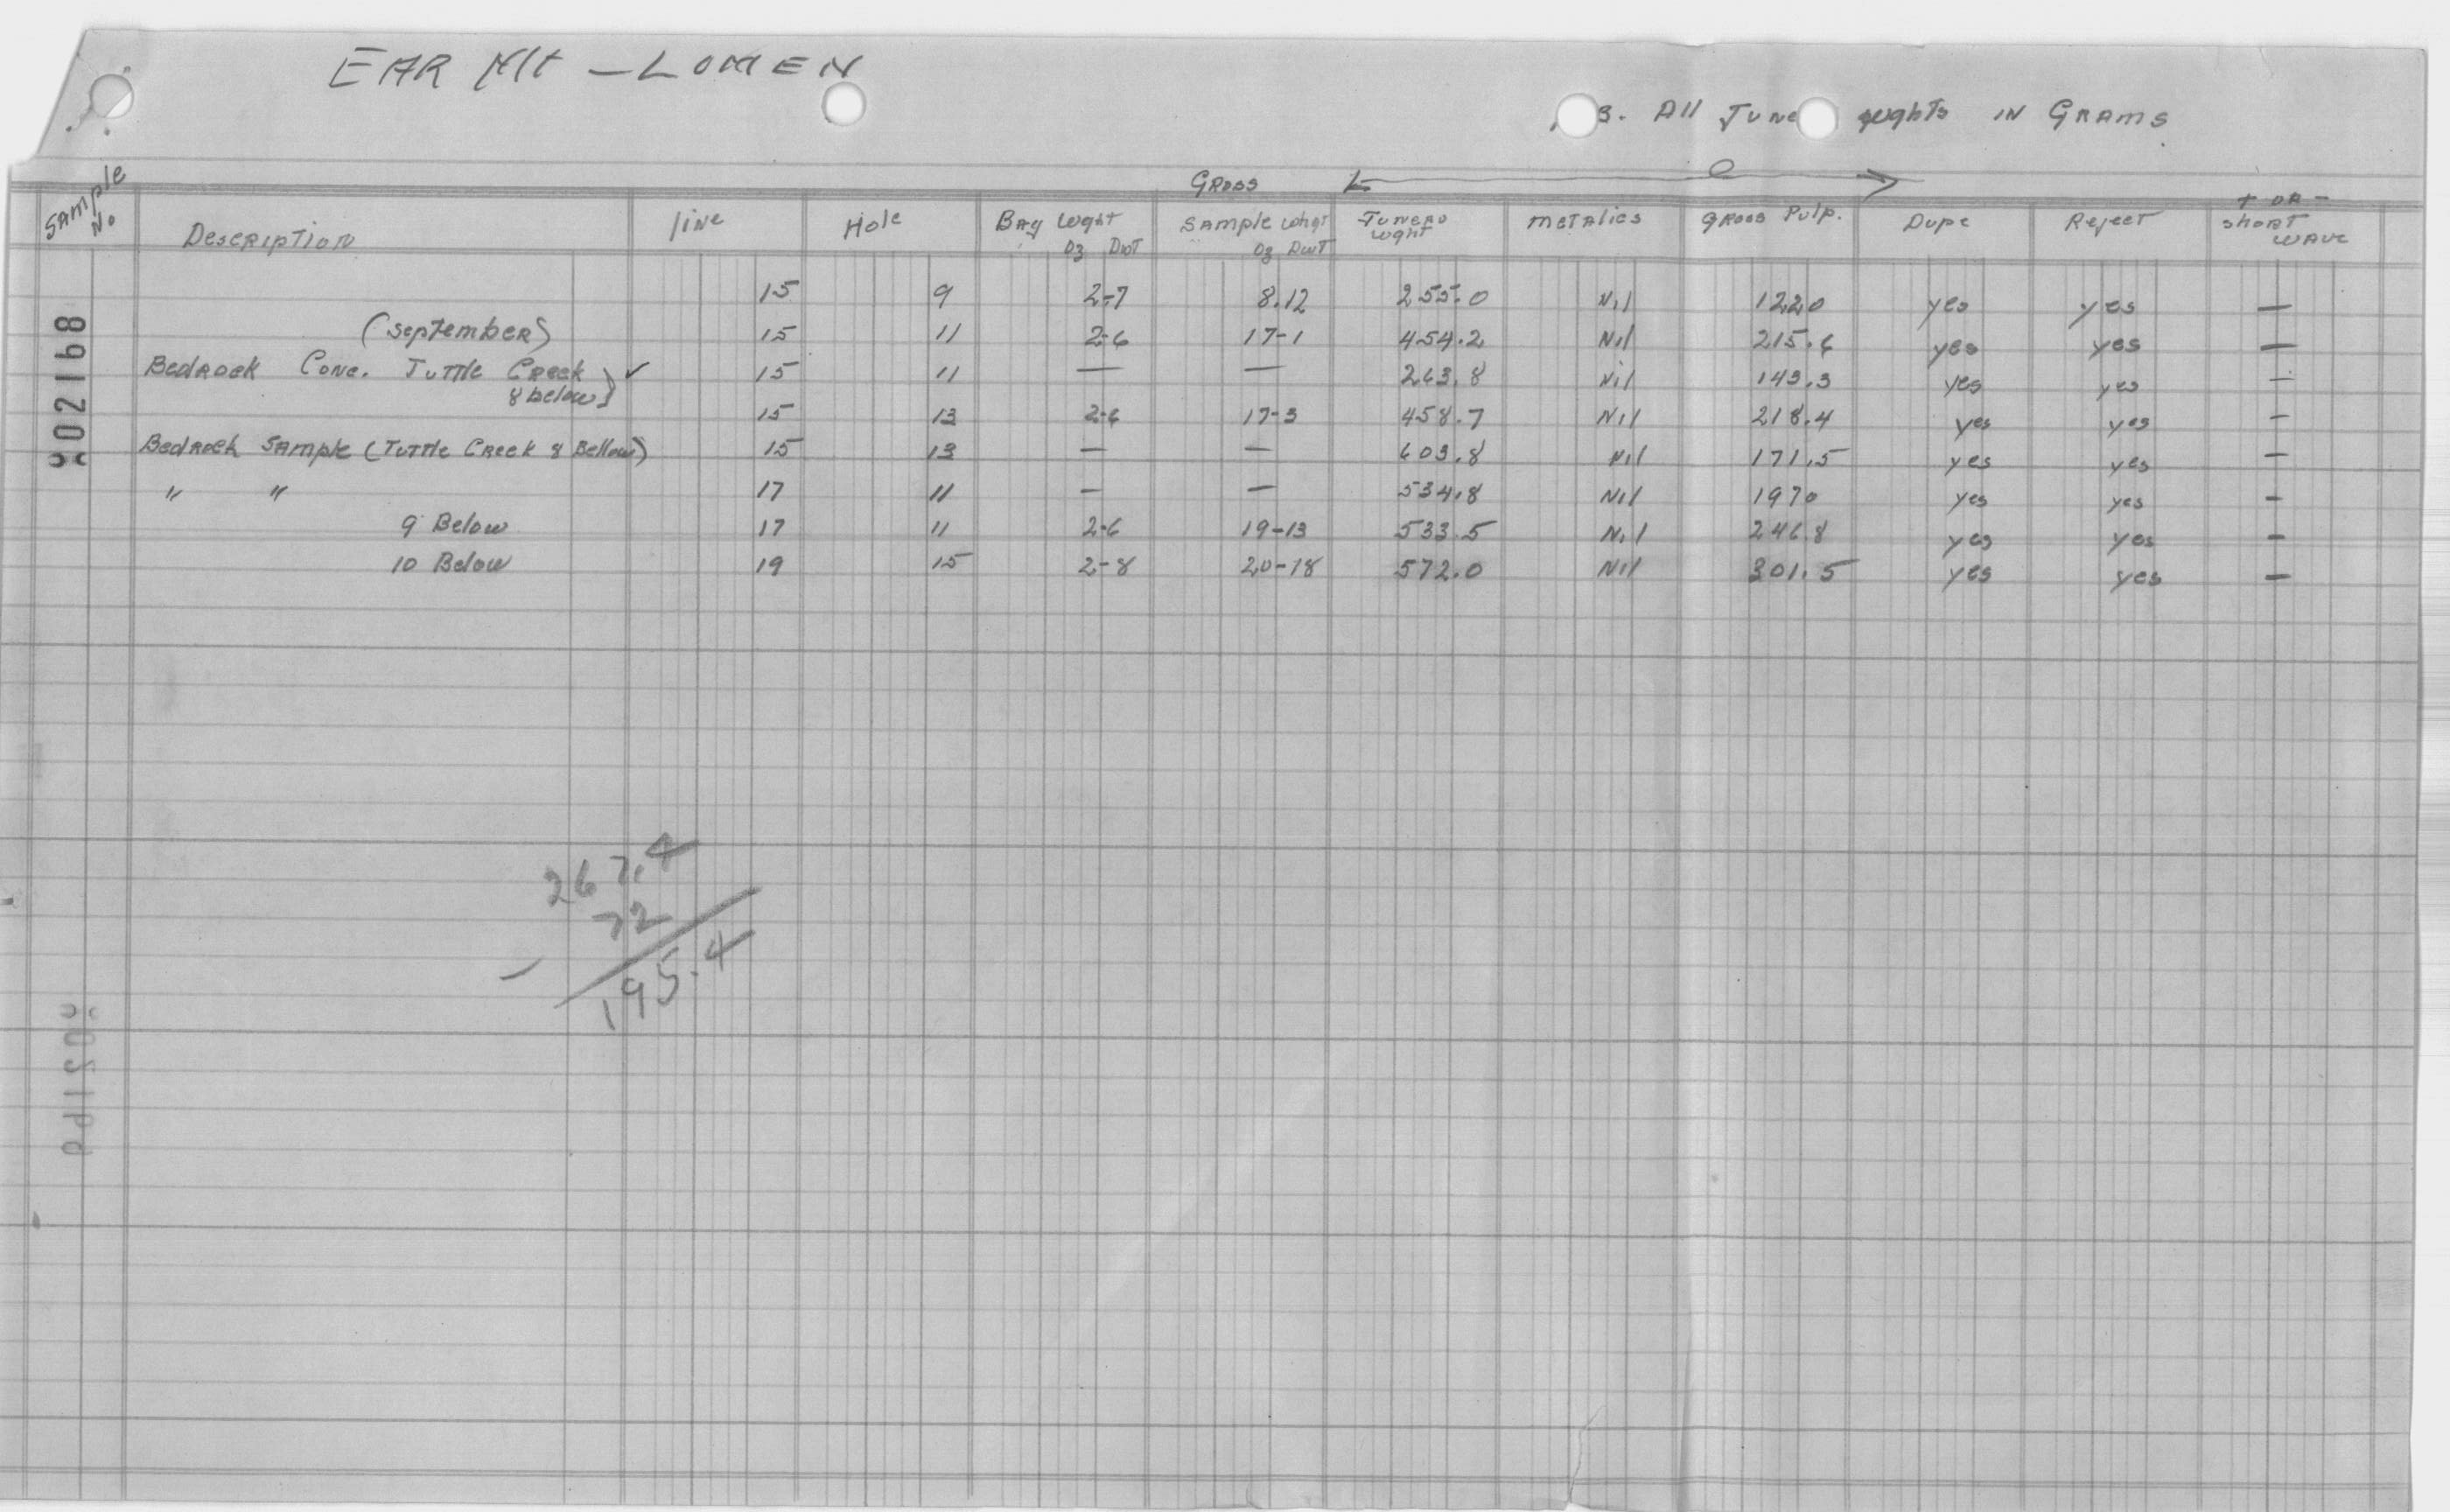 EAR Mt — LOMEN
B. All June wghts IN GRAMS
Gross
Sample No. Description line Hole Bag Wght Oz Dwt Sample Whgt Oz Dwt Juneau Wght Metalics Gross Pulp. Dupe Reject + OR - Short wave
15 9 2-7 8.12 255.0 Nil 122.0 yes yes —
(September) 15 11 2-6 17-1 454.2 Nil 215.6 yes yes —
Bedrock Conc. Tuttle Creek 8 below) ✓ 15 11 — — 263.8 Nil 143.3 yes yes —
15 13 2-6 17-3 458.7 Nil 218.4 yes yes —
Bedrock Sample (Tuttle Creek 8 Bellow) 15 13 — — 603.8 Nil 171.5 yes yes —
" " 17 11 — — 534.8 Nil 197.0 yes yes —
9 Below 17 11 2-6 19-13 533.5 Nil 246.8 yes yes —
10 Below 19 15 2-8 20-18 572.0 Nil 301.5 yes yes —
267.4
72
—
195.4